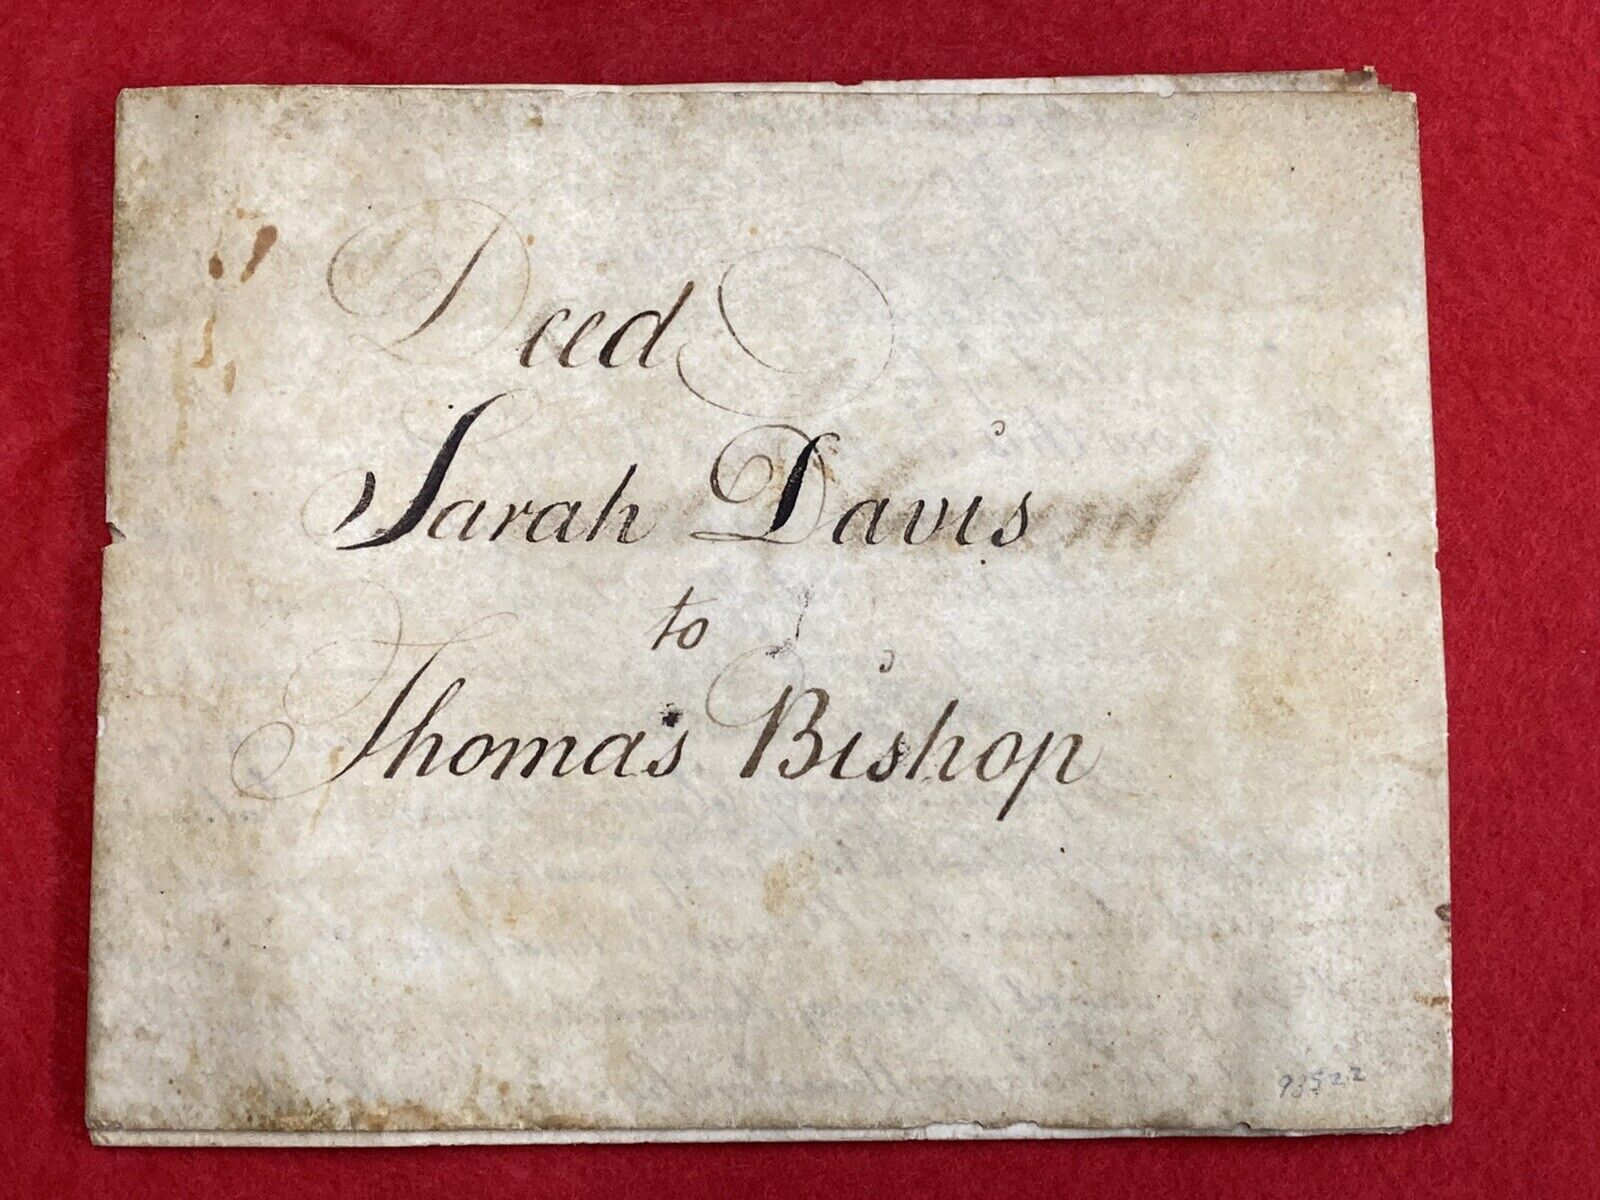 Deed
Sarah Davis
to
Thomas Bishop
93522